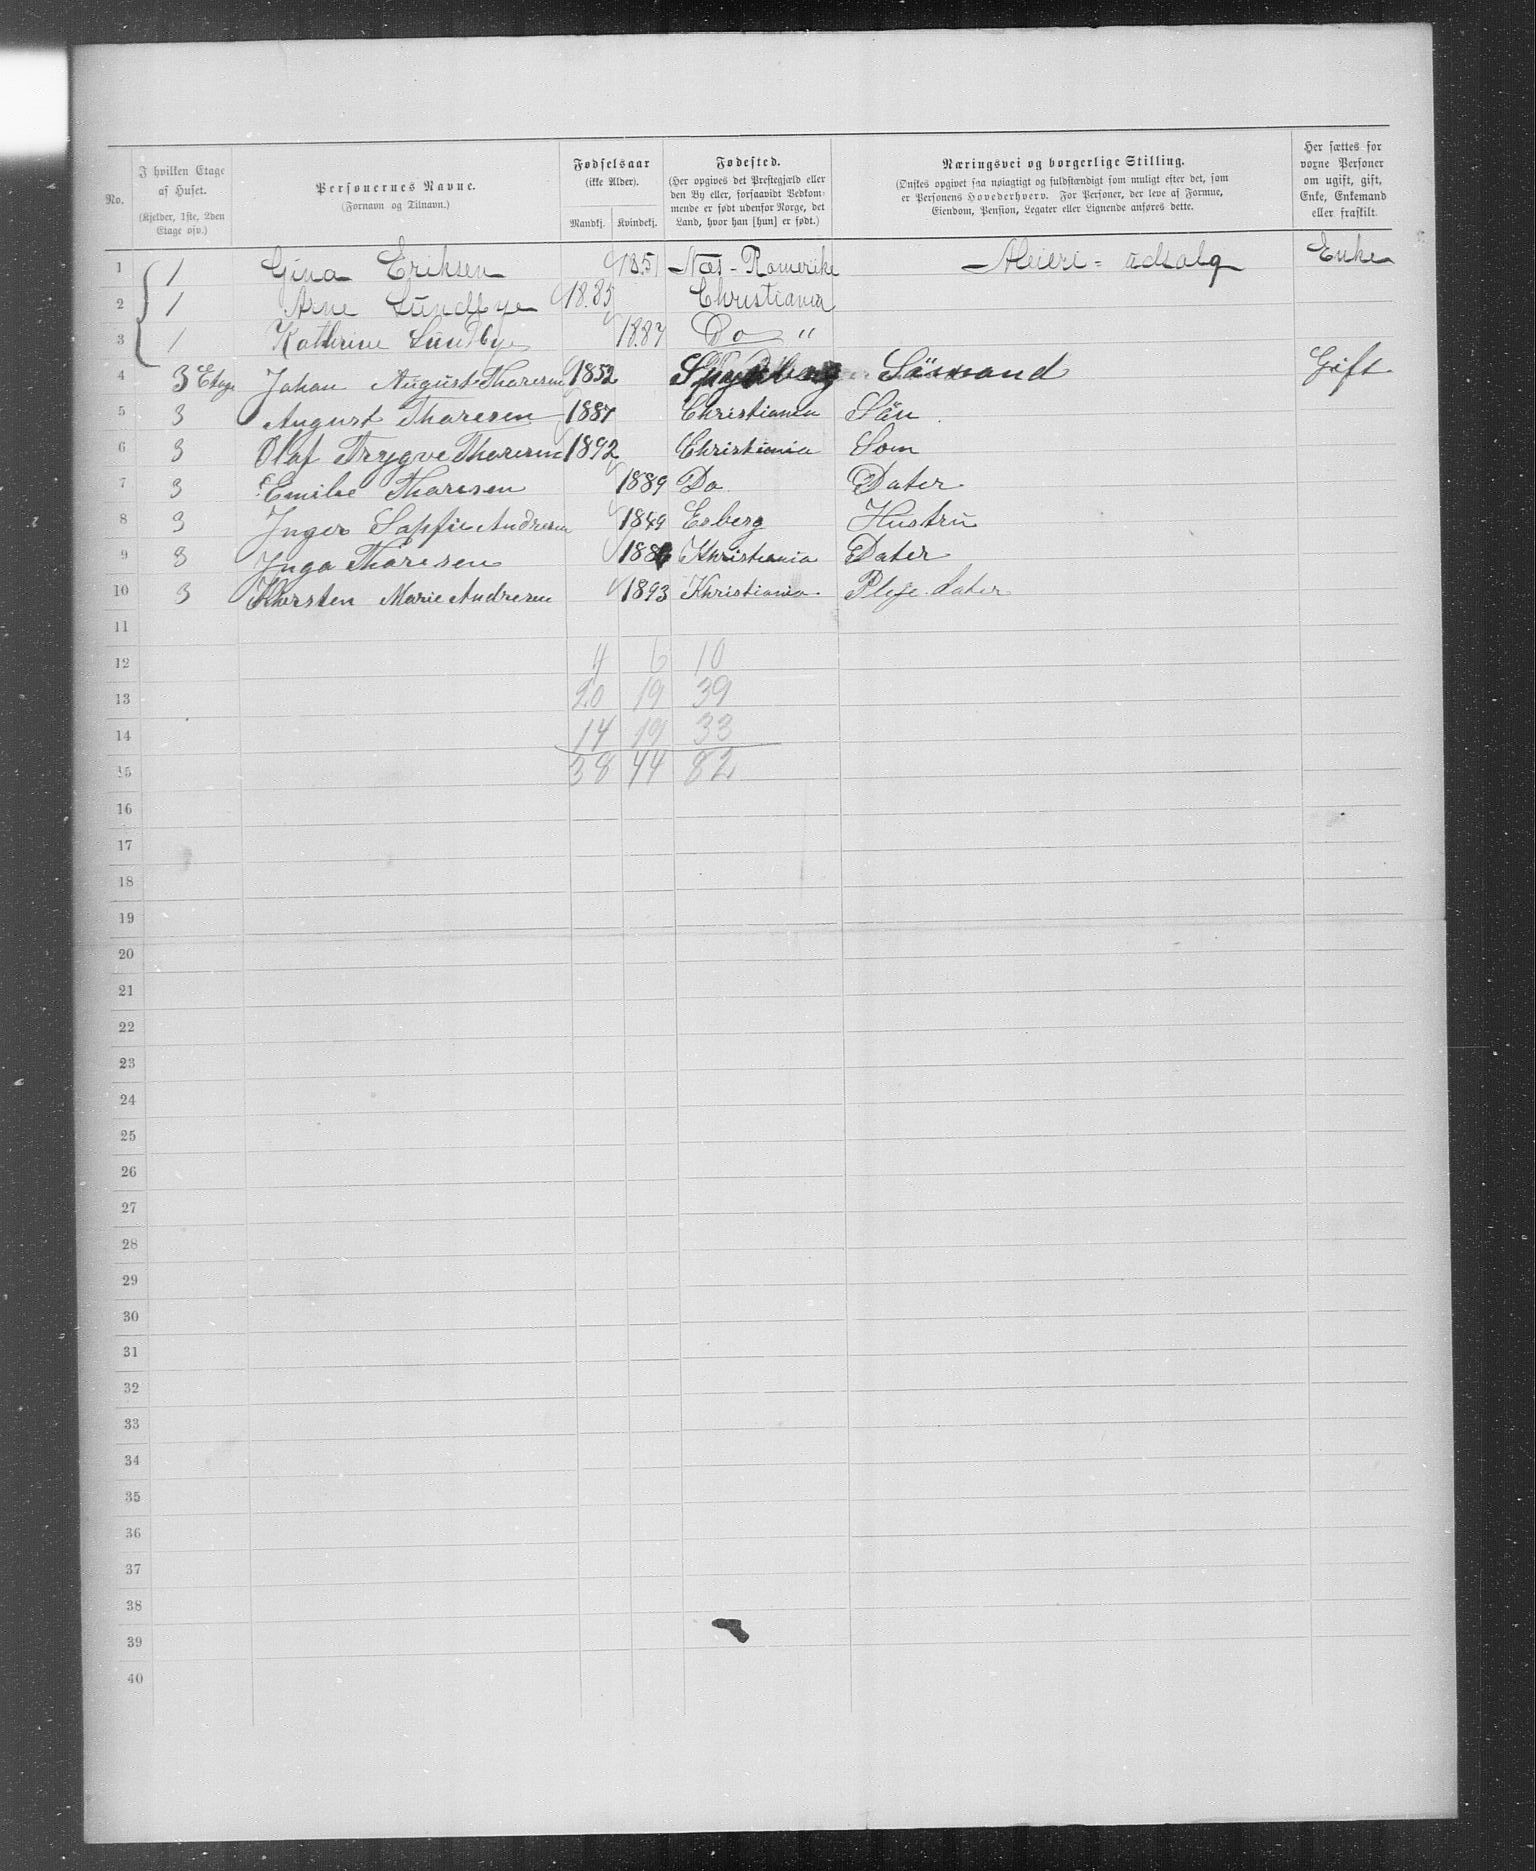 No.
I hvilken Etage af Huset.
(Kjelder, 1ste, 2den Etage osv.)
Personernes Navne.
(Fornavn og Tilnavn.)
Fødselsaar
(ikke Alder).
Mandkj. Kvindekj.
Fødested.
(Her opgives det Prestegjæld eller den By eller, forsaavidt Vedkommende er født udenfor Norge, det Land, hvor han [hun] er født.)
Næringsvei og borgerlige Stilling.
(Ønskes opgivet saa nøiagtigt og fuldstændigt som muligt efter det, som er Personens Hovederhverv. For Personer, der leve af Formue, Eiendom, Pension, Legater eller Lignende anføres dette.)
Her sættes for voxne Personer om ugift, gift, Enke, Enkemand eller fraskilt.
1 1 Gina Eriksen 1851 Næs-Romerike Meieri-udsalg Enke
2 1 Arne Sundbye 1885 Christiania
3 1 Kathrine Sundbye 1887 Do "
4 3 Etage Johan August Thoresen 1852 Sömand Gift
5 3 August Thoresen 1887 Christiania Sön
6 3 Olaf Trygve Thoresen 1892 Christiania Som
7 3 Emilie Thoresen 1889 Do Dater
8 3 Inger Sopfie Andresen 1849 Esberg Hustru
9 3 Inga Thoresen 1886 Khristiania Dater
10 3 Khersten Marie Andresen 1893 Khristiania. Pleje. dater
11
12 4 6 10
13 20 19 39
14 14 19 33
15 38 44 82
16
17
18
19
20
21
22
23
24
25
26
27
28
29
30
31
32
33
34
35
36
37
38
39
40